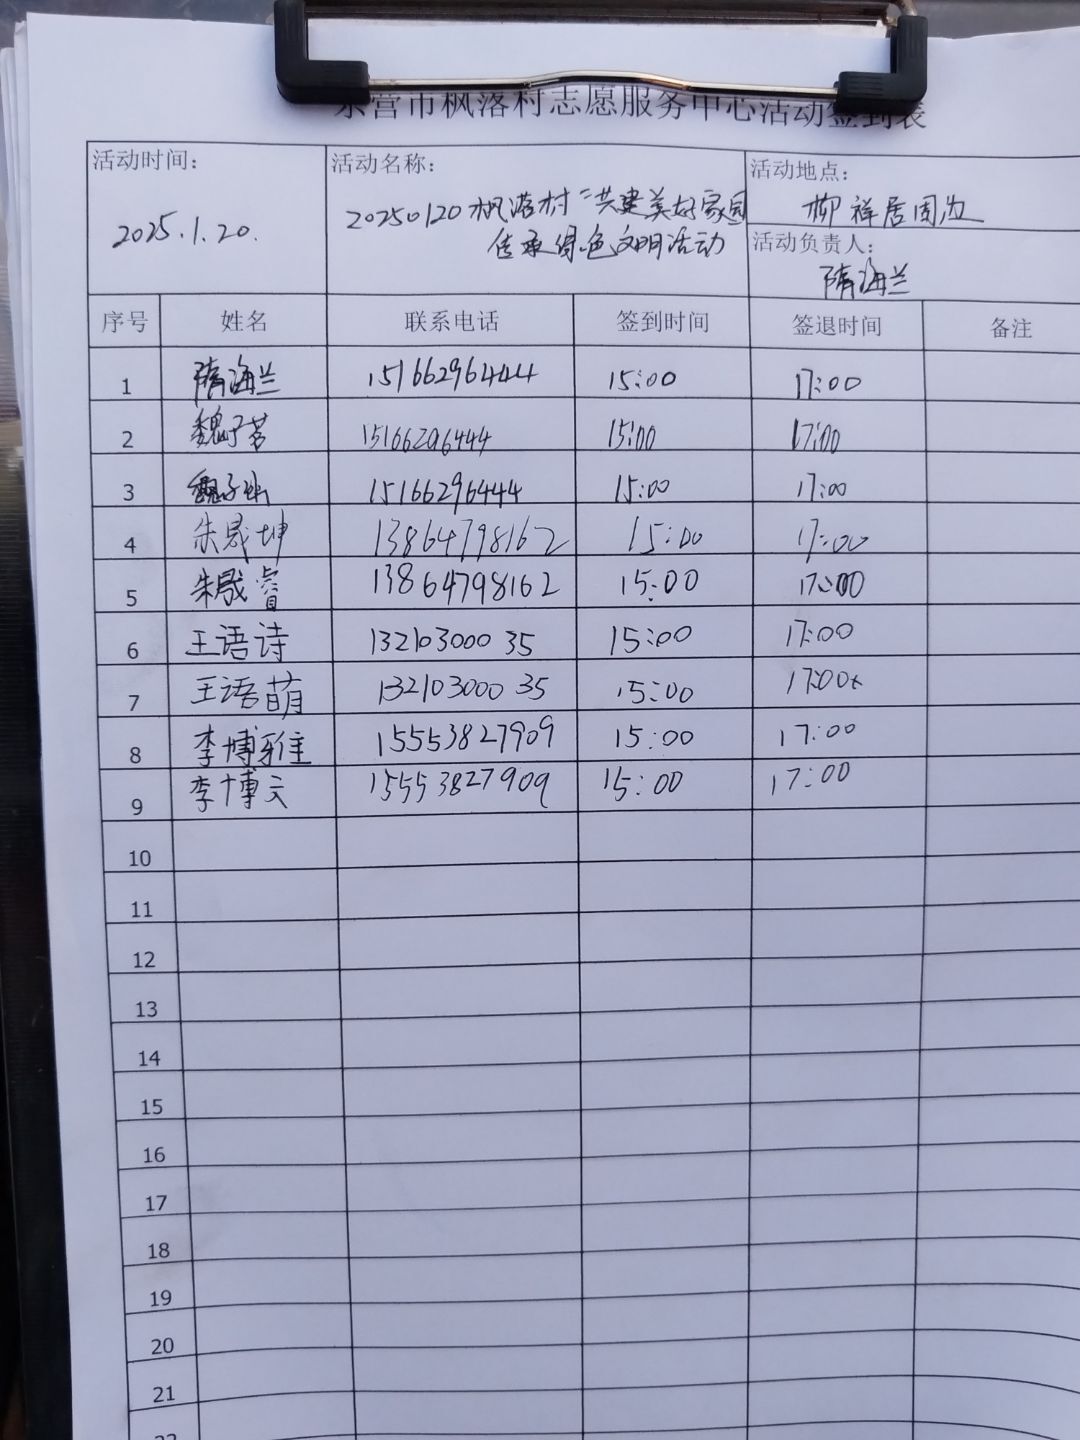 东营市枫落村志愿服务中心活动签到表
活动时间：
2025.1.20.
活动名称：
20250120枫落村“共建美好家园
传承绿色文明活动
活动地点：
柳祥居周边
活动负责人：
隋海兰
序号 姓名 联系电话 签到时间 签退时间 备注
1 隋海兰 15166296444 15:00 17:00
2 魏子茗 15166296444 15:00 17:00
3 魏子 15166296444 15:00 17:00
4 朱晟坤 13864798162 15:00 17:00
5 朱晟睿 13864798162 15:00 17:00
6 王语诗 13210300035 15:00 17:00
7 王语萌 13210300035 15:00 17:00
8 李博雅 15553827909 15:00 17:00
9 李博文 15553827909 15:00 17:00
10
11
12
13
14
15
16
17
18
19
20
21
22